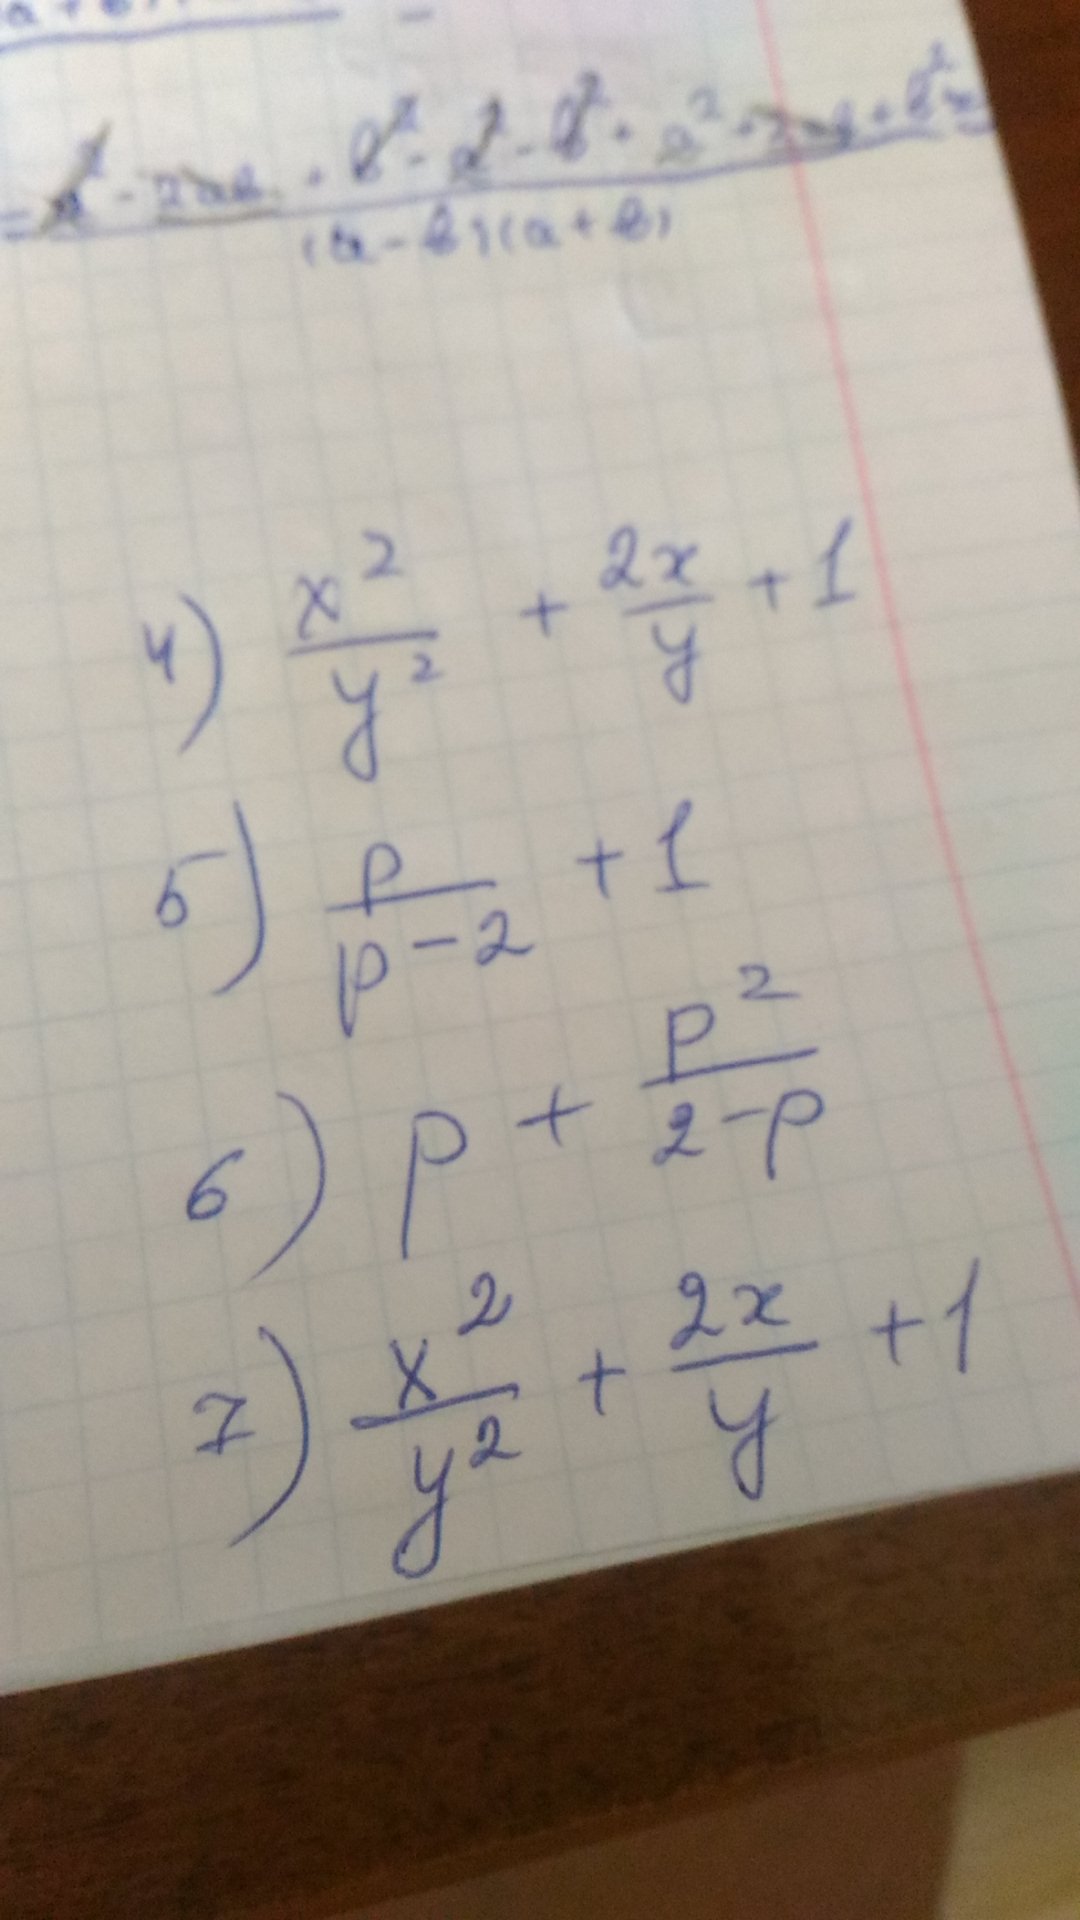 = a² - 2ab + b² - a² - b² + a² + 2ab + b² =
(a - b)(a + b)
4) x²/y² + 2x/y + 1
5) p/(p - 2) + 1
6) p + p²/(2 - p)
7) x²/y² + 2x/y + 1